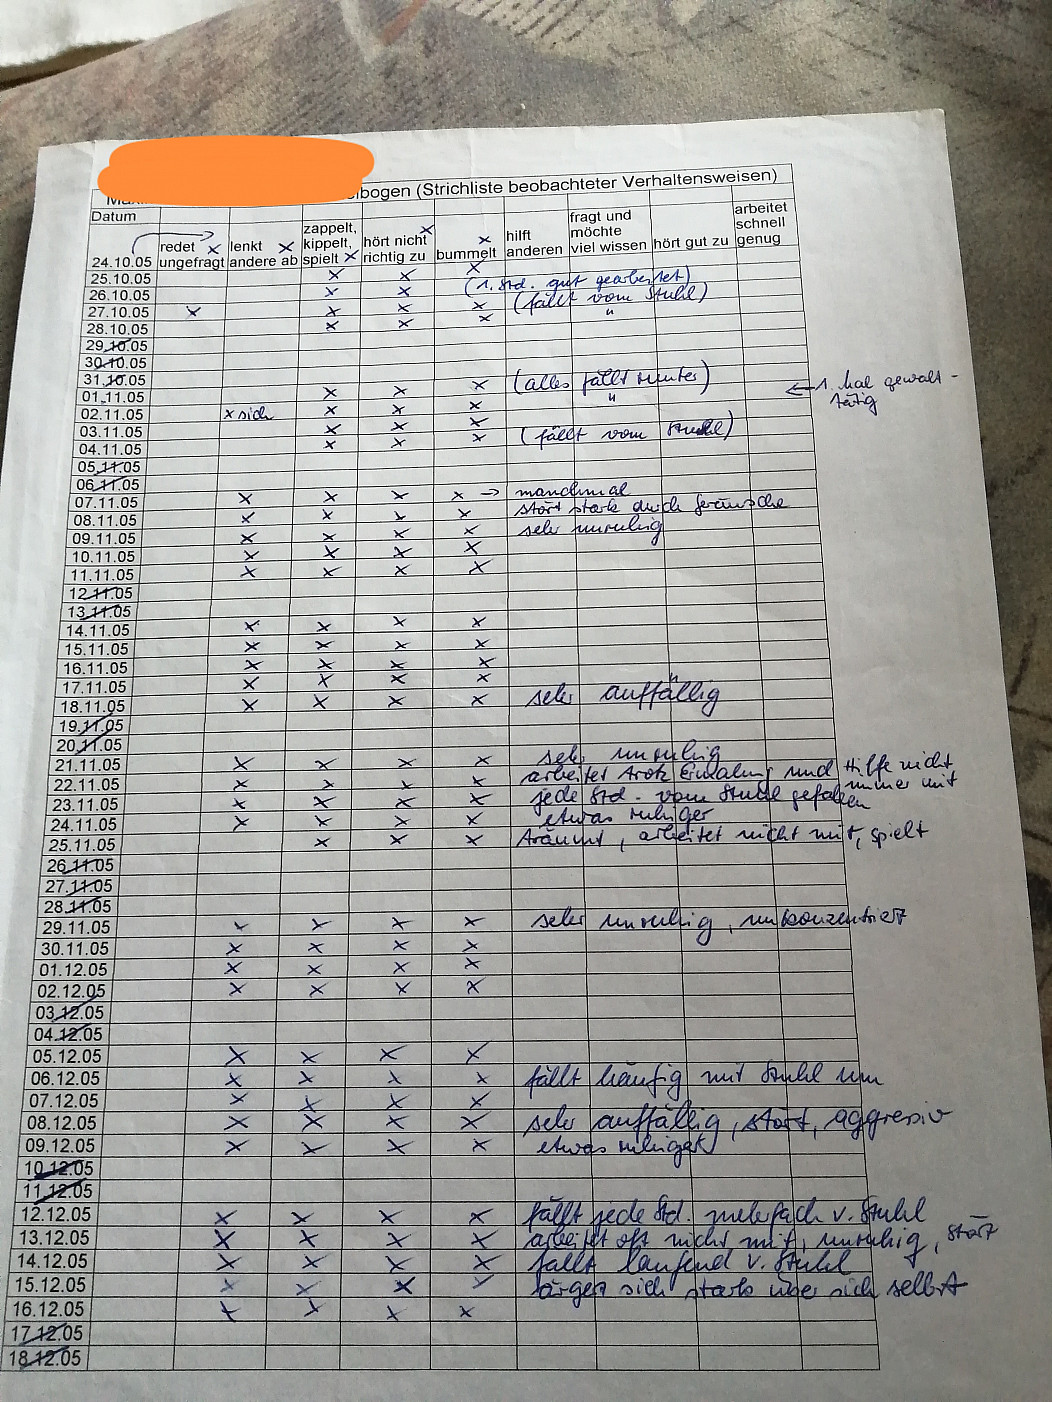 bogen (Strichliste beobachteter Verhaltensweisen)
Datum
redet ungefragt x lenkt andere ab x zappelt, kippelt, spielt x hört nicht richtig zu x bummelt x hilft anderen fragt und möchte viel wissen hört gut zu arbeitet schnell genug
24.10.05
25.10.05 x x x
26.10.05 x x (1. Std. gut gearbeitet)
27.10.05 x x x x (fällt vom Stuhl)
28.10.05 x x x "
29.10.05
30.10.05
31.10.05
01.11.05 x x x (alles fällt runter) ← 1. Mal gewalt-
tätig
02.11.05 x sich x x x "
03.11.05 x x x
04.11.05 x x x (fällt vom Stuhl)
05.11.05
06.11.05
07.11.05 x x x x → manchmal
08.11.05 x x x x stört stark durch Geräusche
09.11.05 x x x x sehr unruhig
10.11.05 x x x x
11.11.05 x x x x
12.11.05
13.11.05
14.11.05 x x x x
15.11.05 x x x x
16.11.05 x x x x
17.11.05 x x x x
18.11.05 x x x x sehr auffällig
19.11.05
20.11.05
21.11.05 x x x x sehr unruhig
22.11.05 x x x x arbeitet trotz und Hilfe nicht
immer mit
23.11.05 x x x x jede Std. vom Stuhl gefallen
24.11.05 x x x x etwas ruhiger
25.11.05 x x x träumt, arbeitet nicht mit, spielt
26.11.05
27.11.05
28.11.05
29.11.05 x x x x sehr unruhig, unkonzentriert
30.11.05 x x x x
01.12.05 x x x x
02.12.05 x x x x
03.12.05
04.12.05
05.12.05 x x x x
06.12.05 x x x x fällt häufig mit Stuhl um
07.12.05 x x x x
08.12.05 x x x x sehr auffällig, stört, aggressiv
09.12.05 x x x x etwas ruhiger
10.12.05
11.12.05
12.12.05 x x x x fällt jede Std. mehrfach v. Stuhl
13.12.05 x x x x arbeitet oft nicht mit, unruhig, stört
14.12.05 x x x x fällt laufend v. Stuhl
15.12.05 x x x x ärgert sich stark über sich selbst
16.12.05 x x x x
17.12.05
18.12.05